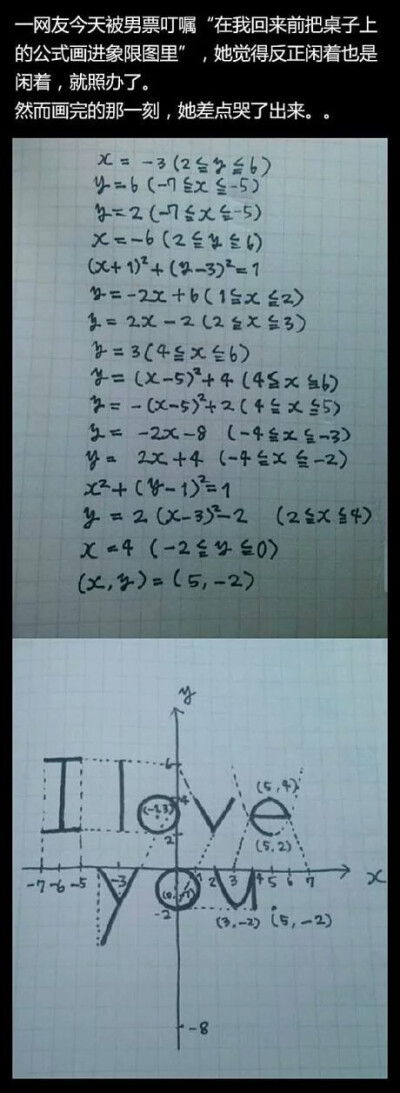 一网友今天被男票叮嘱“在我回来前把桌子上
的公式画进象限图里”，她觉得反正闲着也是
闲着，就照办了。
然而画完的那一刻，她差点哭了出来。。
x = -3 (2≦y≦6)
y=6 (-7≦x≦-5)
y=2 (-7≦x≦-5)
x=-6 (2≦y≦6)
(x+1)²+(y-3)²=1
y=-2x+6 (1≦x≦2)
y=2x-2 (2≦x≦3)
y=3 (4≦x≦6)
y=(x-5)²+4 (4≦x≦6)
y=-(x-5)²+2 (4≦x≦5)
y=-2x-8 (-4≦x≦-3)
y=2x+4 (-4≦x≦-2)
x²+(y-1)²=1
y=2(x-3)²-2 (2≦x≦4)
x=4 (-2≦y≦0)
(x,y)=(5,-2)
y
6
I love
(5,4)
(-1,3)
4
2
(5,2)
-7 -6 -5 -3 1 2 3 4 5 6 7 x
you
-2
(3,-2) (5,-2)
-8